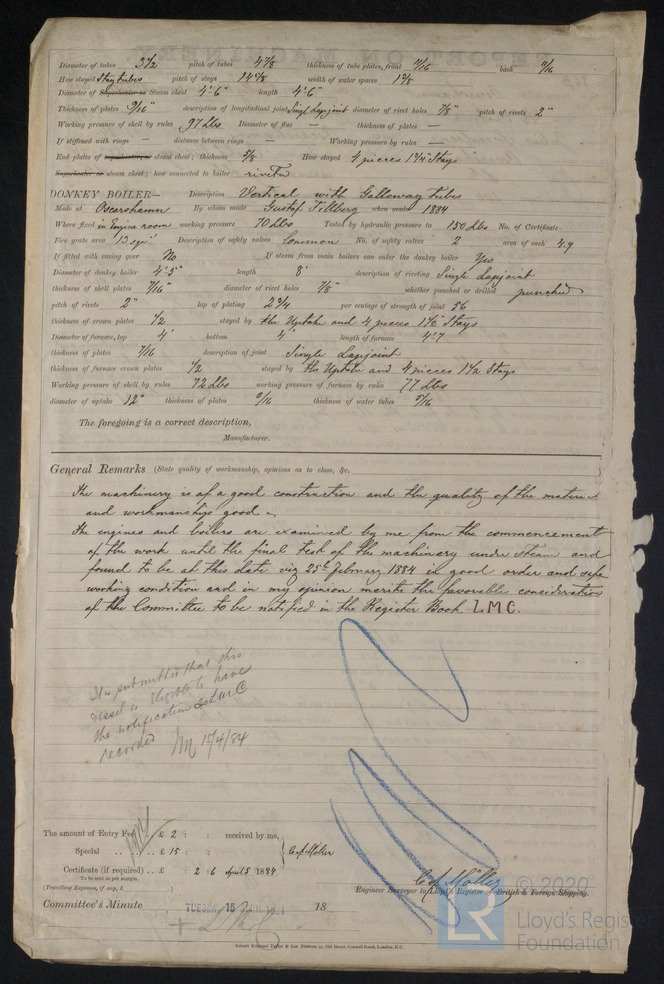 Diameter of tubes 3 1/2 pitch of tubes 4 7/8 thickness of tube plates, front 11/16 back 11/16
How stayed Stay tubes pitch of stays 14 5/8 width of water spaces 1 5/8
Diameter of Superheater or Steam chest 4'-6" length 4'-6"
Thickness of plates 9/16" description of longitudinal joint Single Lapjoint diameter of rivet holes 7/8" pitch of rivets 2"
Working pressure of shell by rules 97 Lbs Diameter of flue — thickness of plates —
If stiffened with rings — distance between rings — Working pressure by rules —
End plates of superheater, or steam chest; thickness 5/8 How stayed 4 pieces 1 3/4 Stays
Superheater or steam chest; how connected to boiler
DONKEY BOILER— Description Vertical with Galloway tubes
Made at Oscarshamn By whom made Gustaf Tillberg when made 1884
Where fixed in Engine room working pressure 70 Lbs Tested by hydraulic pressure to 150 Lbs No. of Certificate
Fire grate area 13 sq. Description of safety valves Common No. of safety valves 2 area of each 4.9
If fitted with easing gear No If steam from main boilers can enter the donkey boiler Yes
Diameter of donkey boiler 4'-5" length 8' description of riveting Single Lapjoint
thickness of shell plates 7/16" diameter of rivet holes 7/8" whether punched or drilled punched
pitch of rivets 2" lap of plating 2 3/4 per centage of strength of joint 56
thickness of crown plates 1/2 stayed by the Uptake and 4 pieces 1 1/2 Stays
Diameter of furnace, top 4' bottom 4' length of furnace 4'.7
thickness of plates 7/16 description of joint Single Lapjoint
thickness of furnace crown plates 1/2 stayed by the Uptake and 4 pieces 1 1/2 Stays
Working pressure of shell by rules 72 Lbs working pressure of furnace by rules 77 Lbs
diameter of uptake 12" thickness of plates thickness of water tubes
The foregoing is a correct description,
Manufacturer.
General Remarks (State quality of workmanship, opinions as to class, &c.
The machinery is of a good construction and the quality of the material
and workmanship good.
The engines and boilers are examined by me from the commencement
of the work until the final test of the machinery under Steam and
found to be at this date viz 25th February 1884 in good order and safe
working condition and in my opinion merits the favorable consideration
of the Committee to be notified in the Register Book L.M.C.
It is submitted that this
vessel is eligible to have
the notification LMC
recorded
15/4/84
The amount of Entry Fee .. £ 2 : : received by me,
Special .. .. £ 15 : :
Certificate (if required) .. £ 2 : 6 April 5 1884
To be sent as per margin.
(Travelling Expenses, if any, £ )
Engineer Surveyor to Lloyd's Register of British & Foreign Shipping.
Committee's Minute TUESDAY 15 APRIL 1884 18
Robert Edmund Taylor & Son, Printers, 19, Old Street, Goswell Road, London, E.C.
© 2020
LR
Lloyd's Register
Foundation